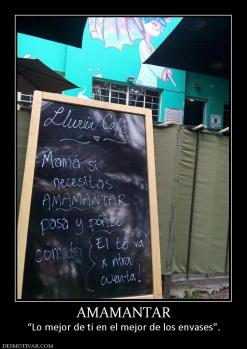 Lluvia Café
Mamá si
necesitas
AMAMANTAR
pasa y ponte
comoda
El té va
x ntra
cuenta!
AMAMANTAR
“Lo mejor de ti en el mejor de los envases”.
DESMOTIVAR.COM